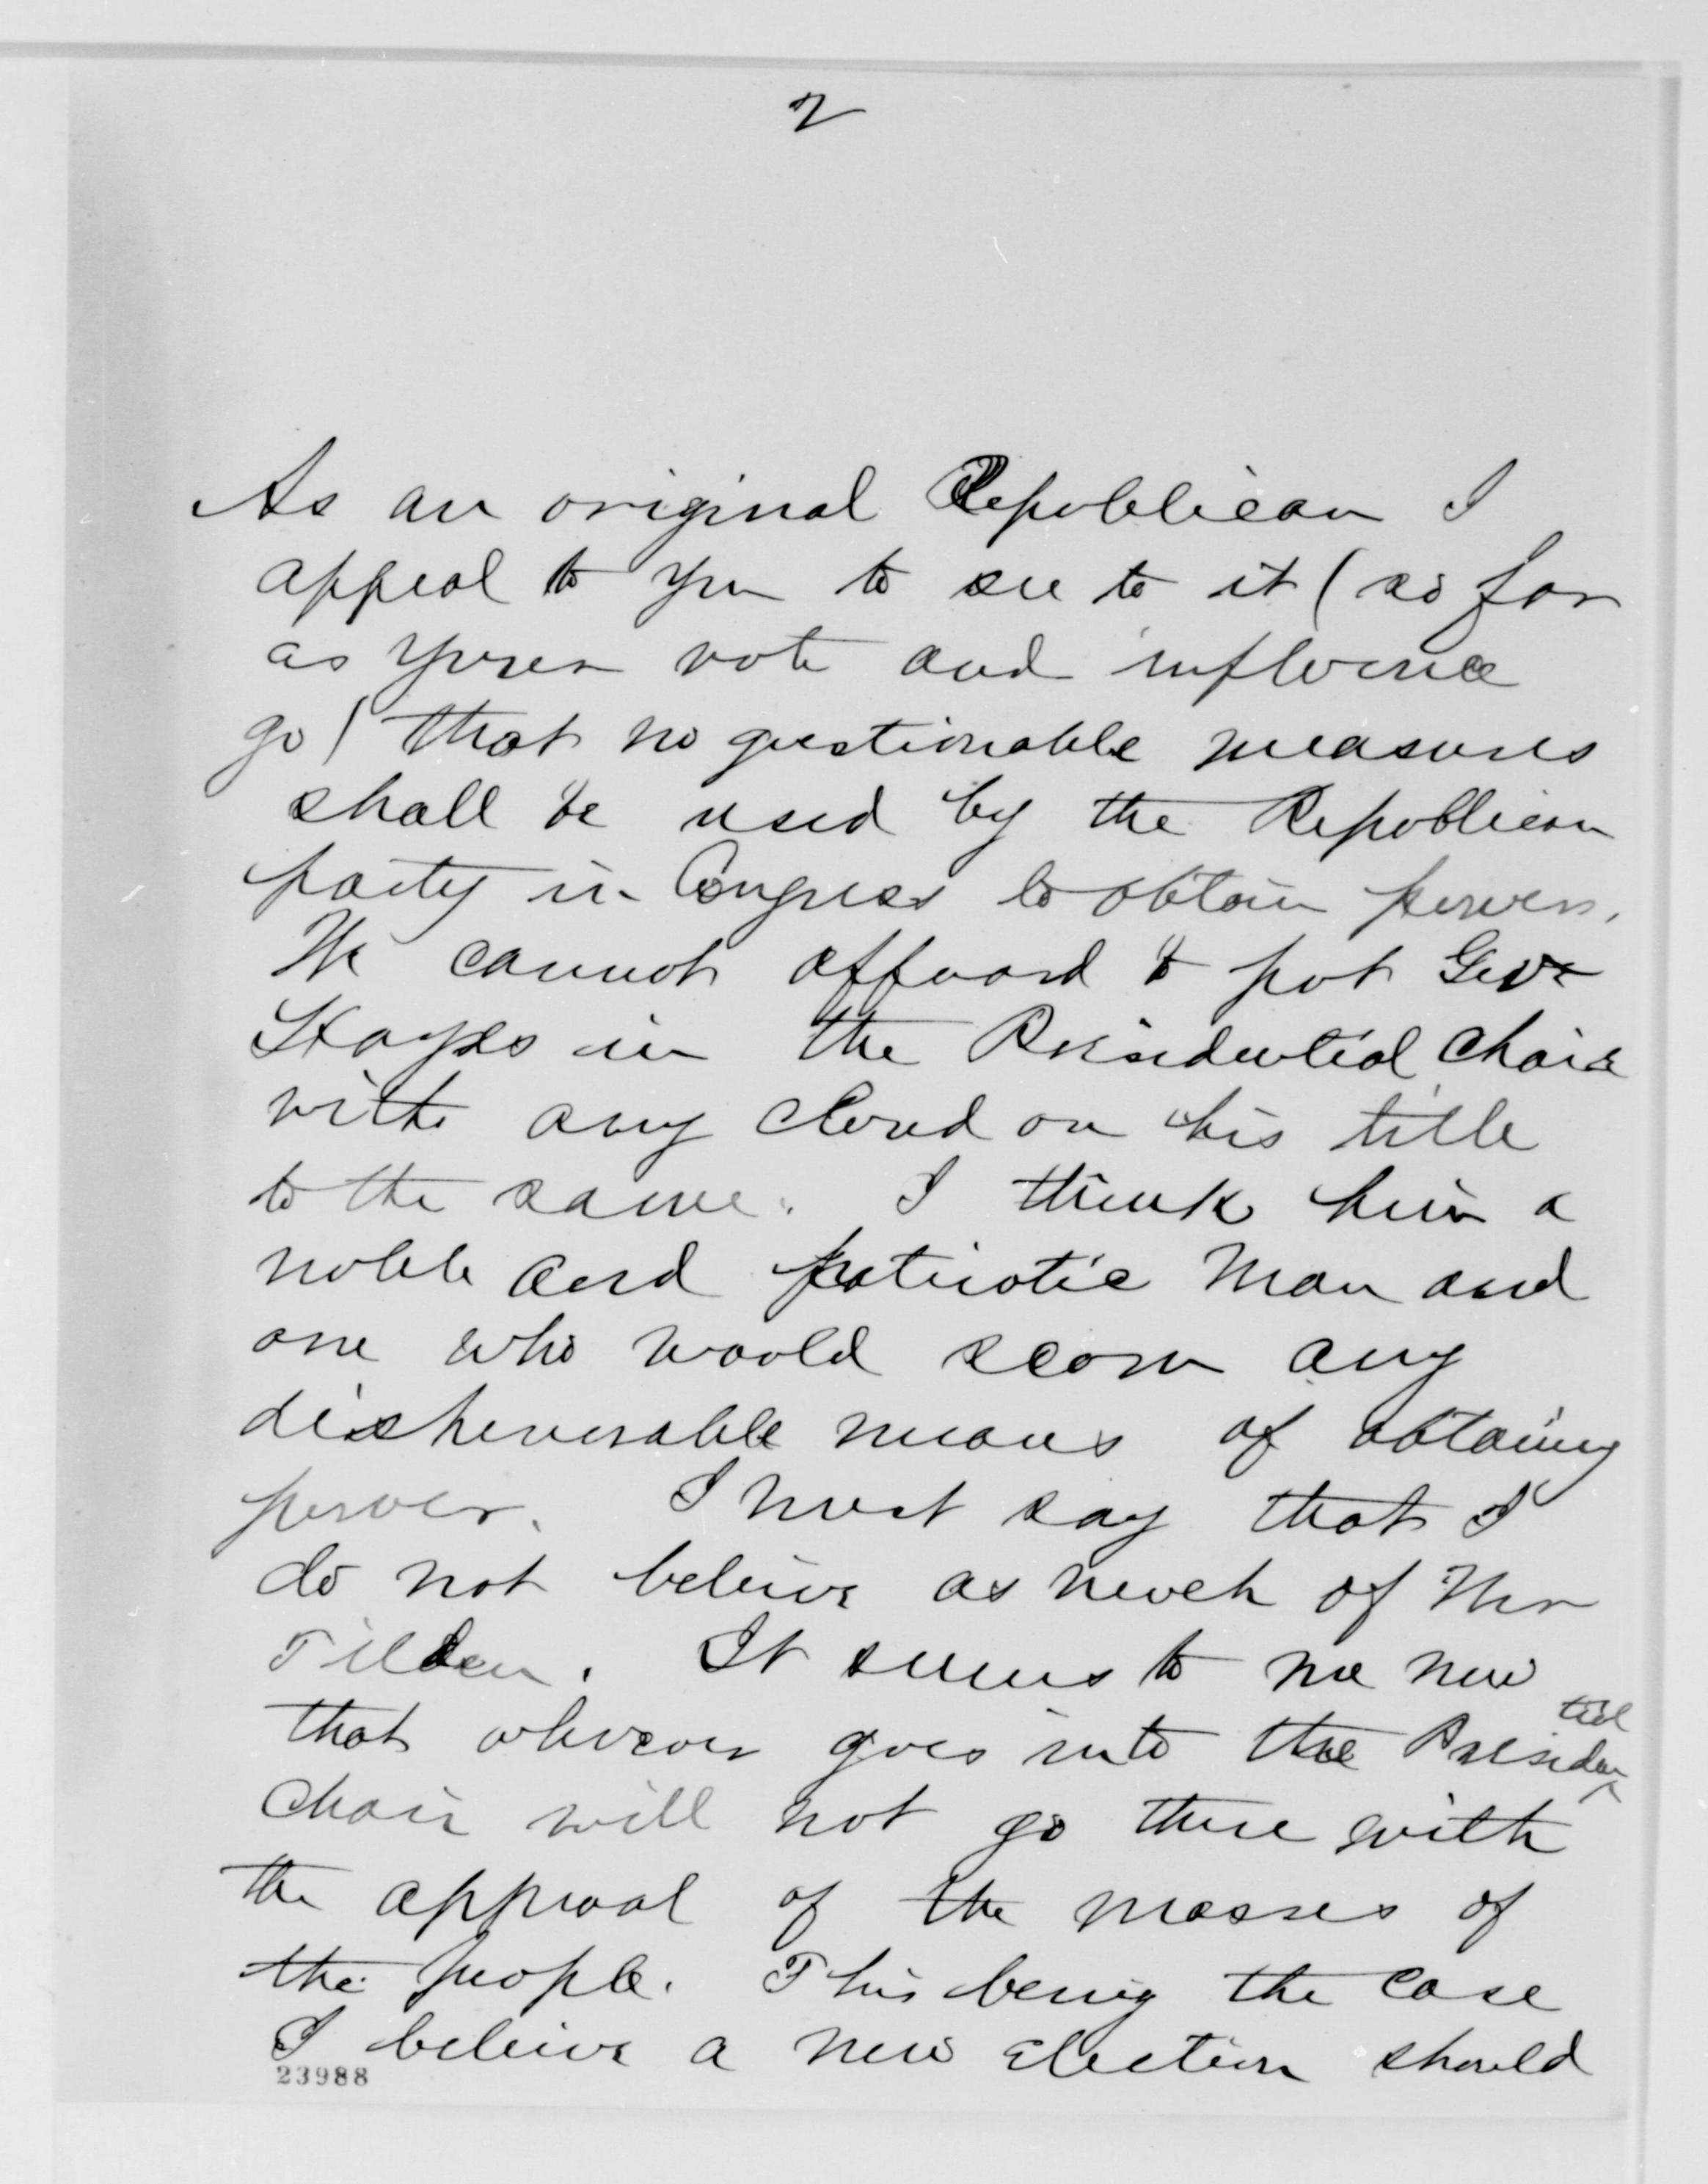 2
As an original Republican I
appeal to you to see to it (so far
as your vote and influence
go) that no questionable measures
shall be used by the Republican
party in Congress to obtain power.
We cannot afford to put Gov
Hayes in the Presidential Chair
with any cloud on his title
to the same. I think him a
noble and patriotic man and
one who would scorn any
dishonorable means of obtaining
power. I must say that I
do not believe as much of Mr
Tilden. It seems to me now
that whoever goes into the Presidential
Chair will not go there with
the approval of the masses of
the people. This being the case
I believe a new election should
23988